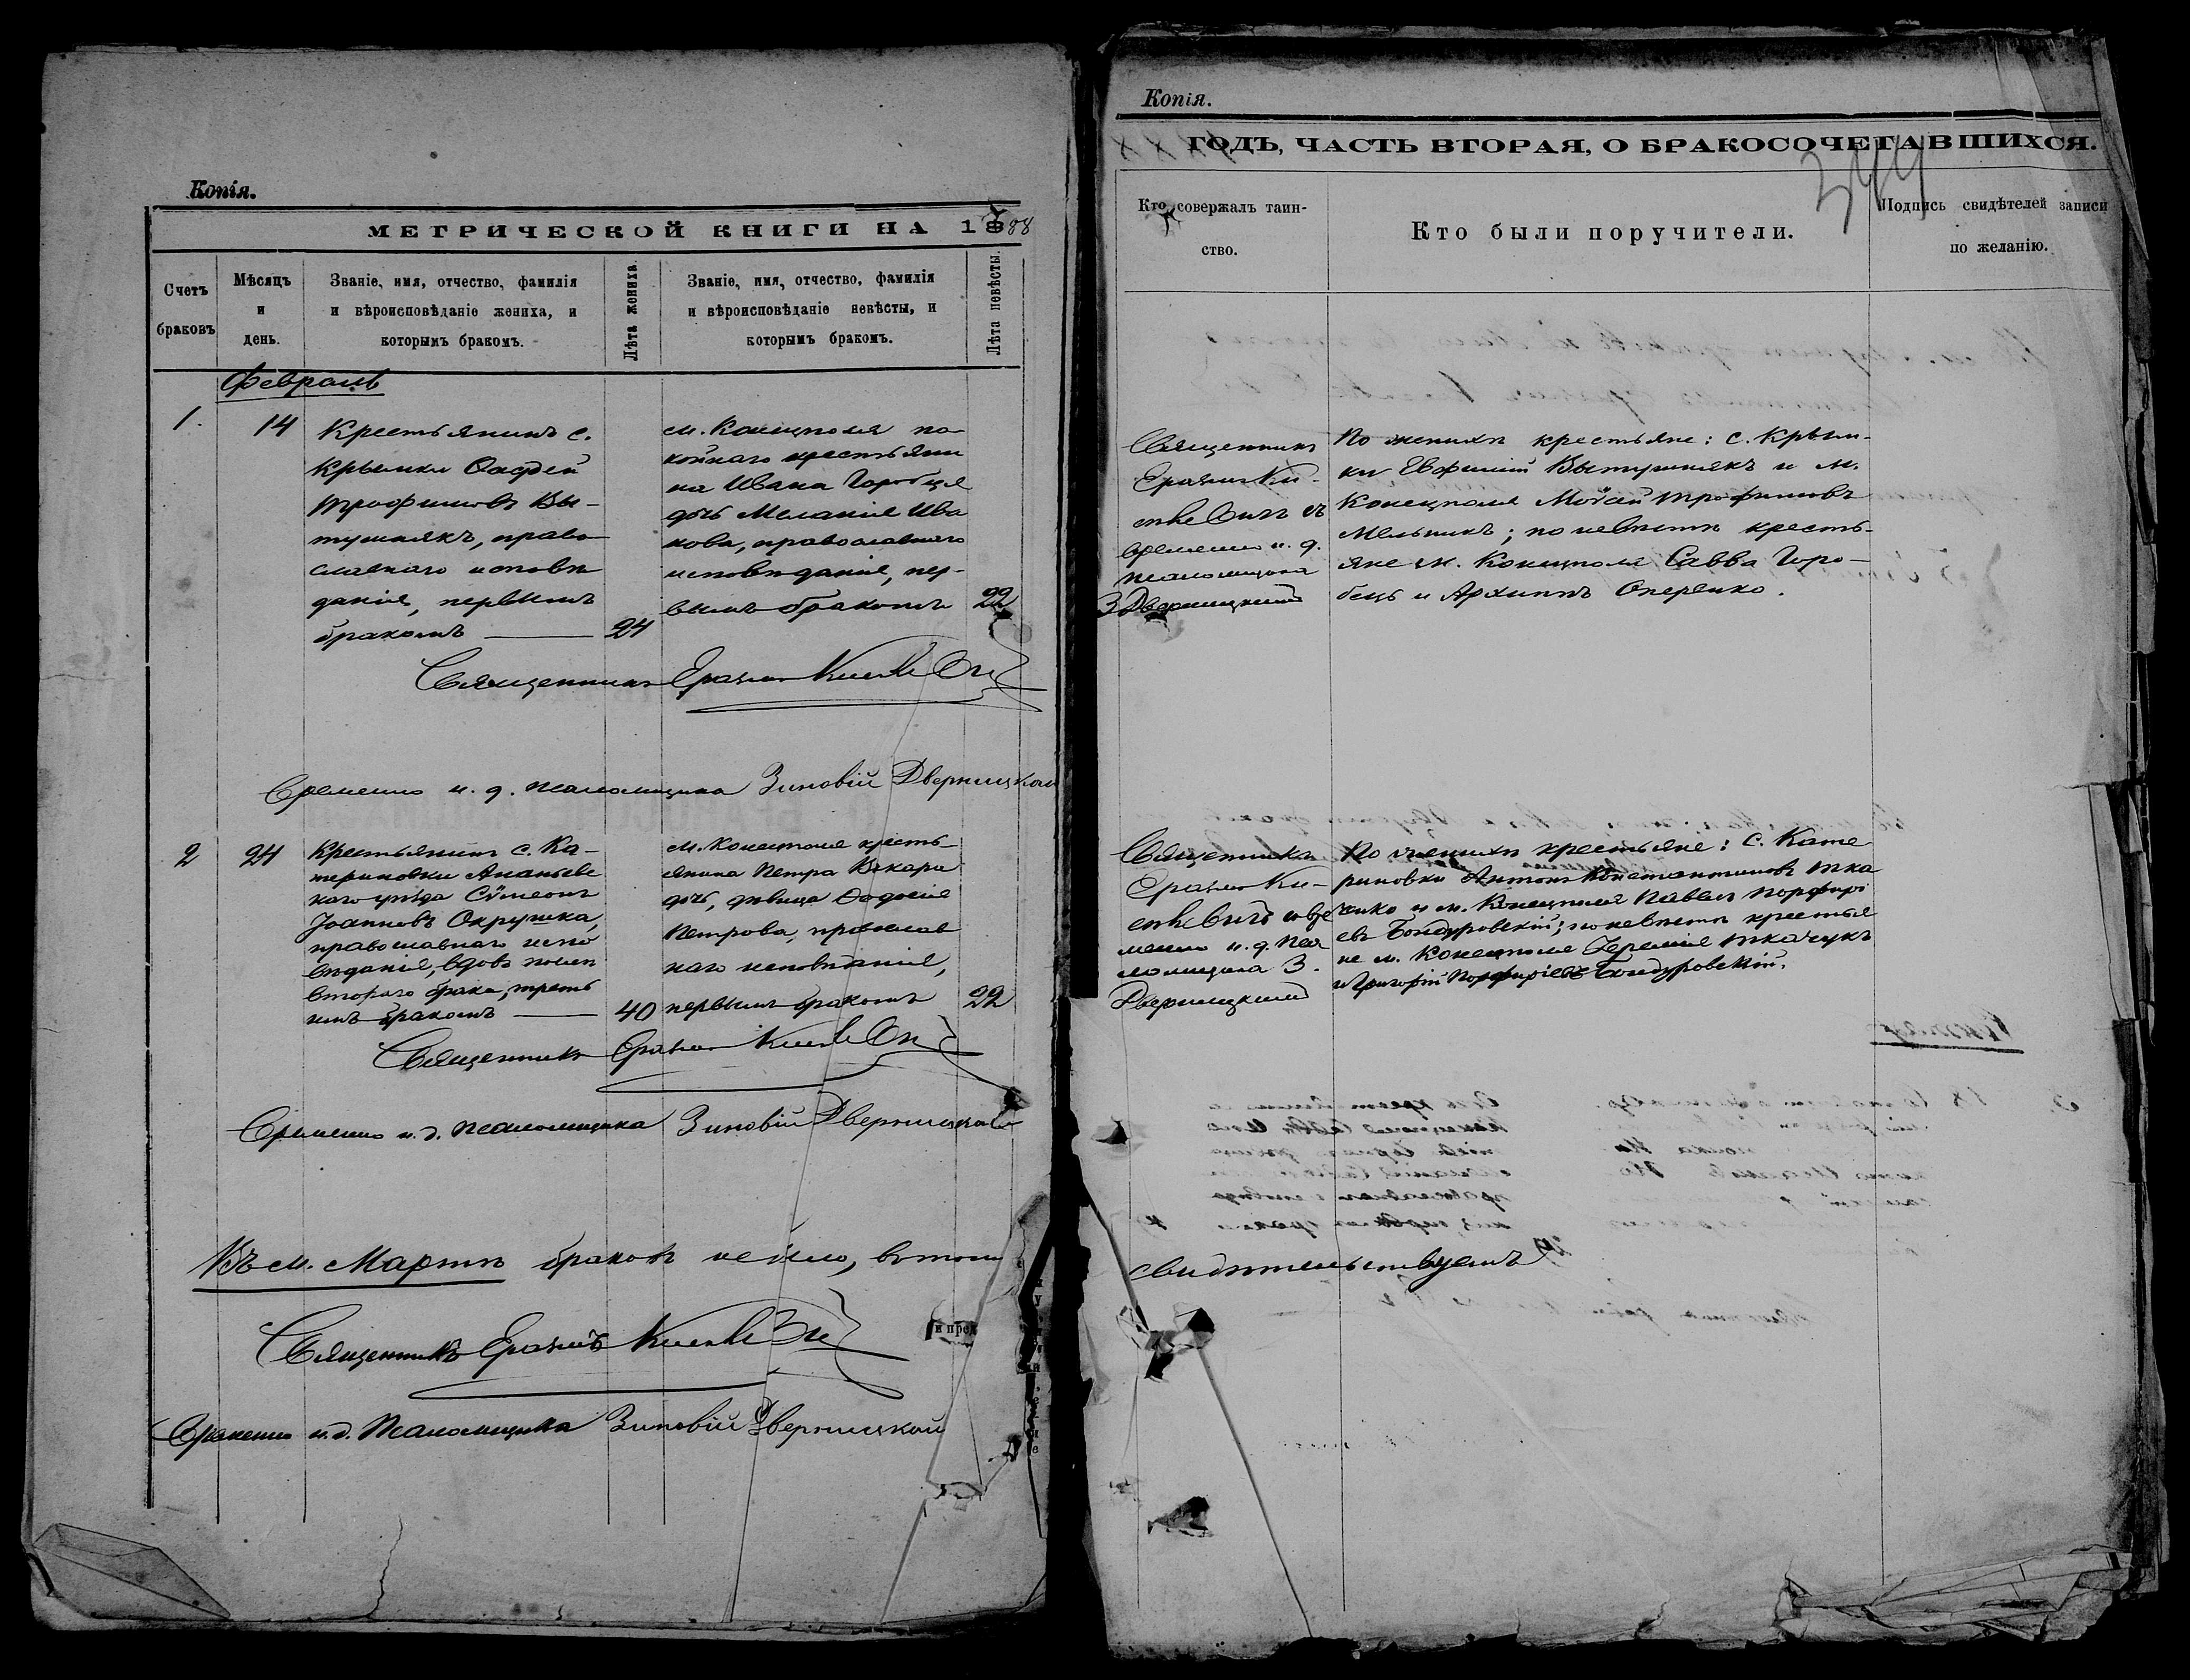 Копія.
МЕТРИЧЕСКОЙ КНИГИ НА 1888
Счетъ браковъ
Мѣсяцъ и день.
Званіе, имя, отчество, фамилія и вѣроисповѣданіе жениха, и которымъ бракомъ.
Лѣта жениха.
Званіе, имя, отчество, фамилія и вѣроисповѣданіе невѣсты, и которымъ бракомъ.
Лѣта невѣсты.
Февраль
1.
14
Крестьянинъ с.
Крымки Фадей
Трофимовъ Вы-
тушнякъ, право-
славнаго исповѣ
данія, первымъ
бракомъ
24
м. Конецполя по-
койнаго крестьяни
на Ивана Горобца
дочь Меланія Ива
нова, православнаго
исповѣданія, пер-
вымъ бракомъ
22
Священникъ Еразмъ
Временно и. д. псаломщика Зиновій Дверницкій
2
24
Крестьянинъ с. Ка-
териновки Ананьевс
каго уѣзда Сѵмеонъ
Іоанновъ Окрушка,
православнаго испо
вѣданія, вдовъ послѣ
втораго брака, треть
имъ бракомъ
40
м. Конецполя кресть-
янина Петра
дочь, дѣвица Ѳеодосія
Петрова, православ
наго исповѣданія,
первымъ бракомъ
22
Священникъ Еразмъ
Временно и. д. псаломщика Зиновій Дверницкій
Въ м. Мартѣ браковъ не было, въ томъ
Священникъ Еразмъ
Временно и. д. Псаломщика Зиновій Дверницкій
Копія.
ГОДЪ, ЧАСТЬ ВТОРАЯ, О БРАКОСОЧЕТАВШИХСЯ.
Кто совержалъ таин-
ство.
Кто были поручители.
Подпись свидѣтелей записи
по желанію.
Священникъ
Еразмъ Ки-
съ
временно и. д.
псаломщика
З Дверницкимъ
По женихѣ крестьяне: с. Крым-
ки Евфимій Вытушнякъ и м.
Конецполя Моѵсей Трофимовъ
Мельникъ; по невѣстѣ кресть-
яне м. Конецполя Савва Горо-
бець и Архиппъ Оперенко.
Священникъ
Еразмъ Ки-
съ вре
менно и. д. пса
ломщика З.
Дверницкимъ
По женихѣ крестьяне: с. Кате
риновки Антонъ Константиновъ Тка
ченко и м. Конецполя Павелъ Порфирі
евъ Бондуровскій; по невѣстѣ крестья
не м. Конецполя Іеремія Ткачукъ
и Григорій Порфиріевъ Бондуровскій.
свидѣтельствуемъ